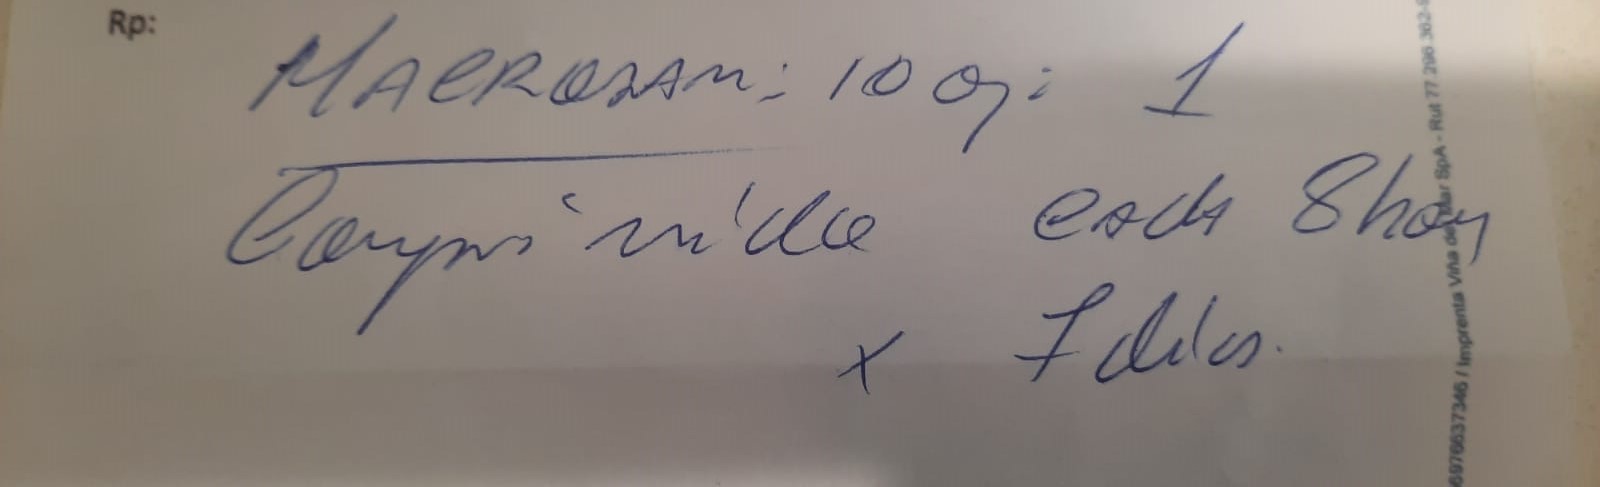 Rp:
MACROZAM: 10 1
Comprimido cada 8 hrs
x 7 días.
6976637346 / Imprenta Viña del Mar SpA - Rut 77.296.382-